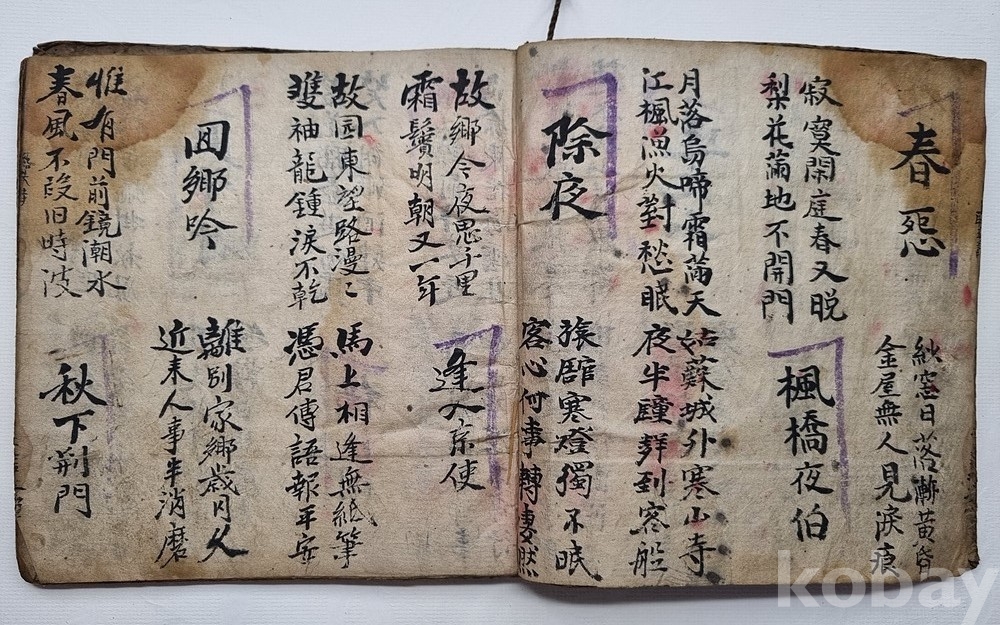 春怨
紗窓日落漸黃昏
金屋無人見淚痕
寂寞閑庭春又晚
梨花满地不開門
楓橋夜伯
月落烏啼霜满天
江楓漁火對愁眠
姑蘇城外寒山寺
夜半鐘聲到客船
除夜
旅舘寒燈獨不眠
客心何事轉凄然
故鄉今夜思千里
霜鬢明朝又一年
逢入京使
故园東望路漫〻
雙袖龍鍾淚不乾
馬上相逢無紙筆
憑君傳語報平安
囬鄉吟
離別家鄉歲月久
近来人事半消磨
惟有門前鏡潮水
春風不改旧時波
秋下荆門
kobay